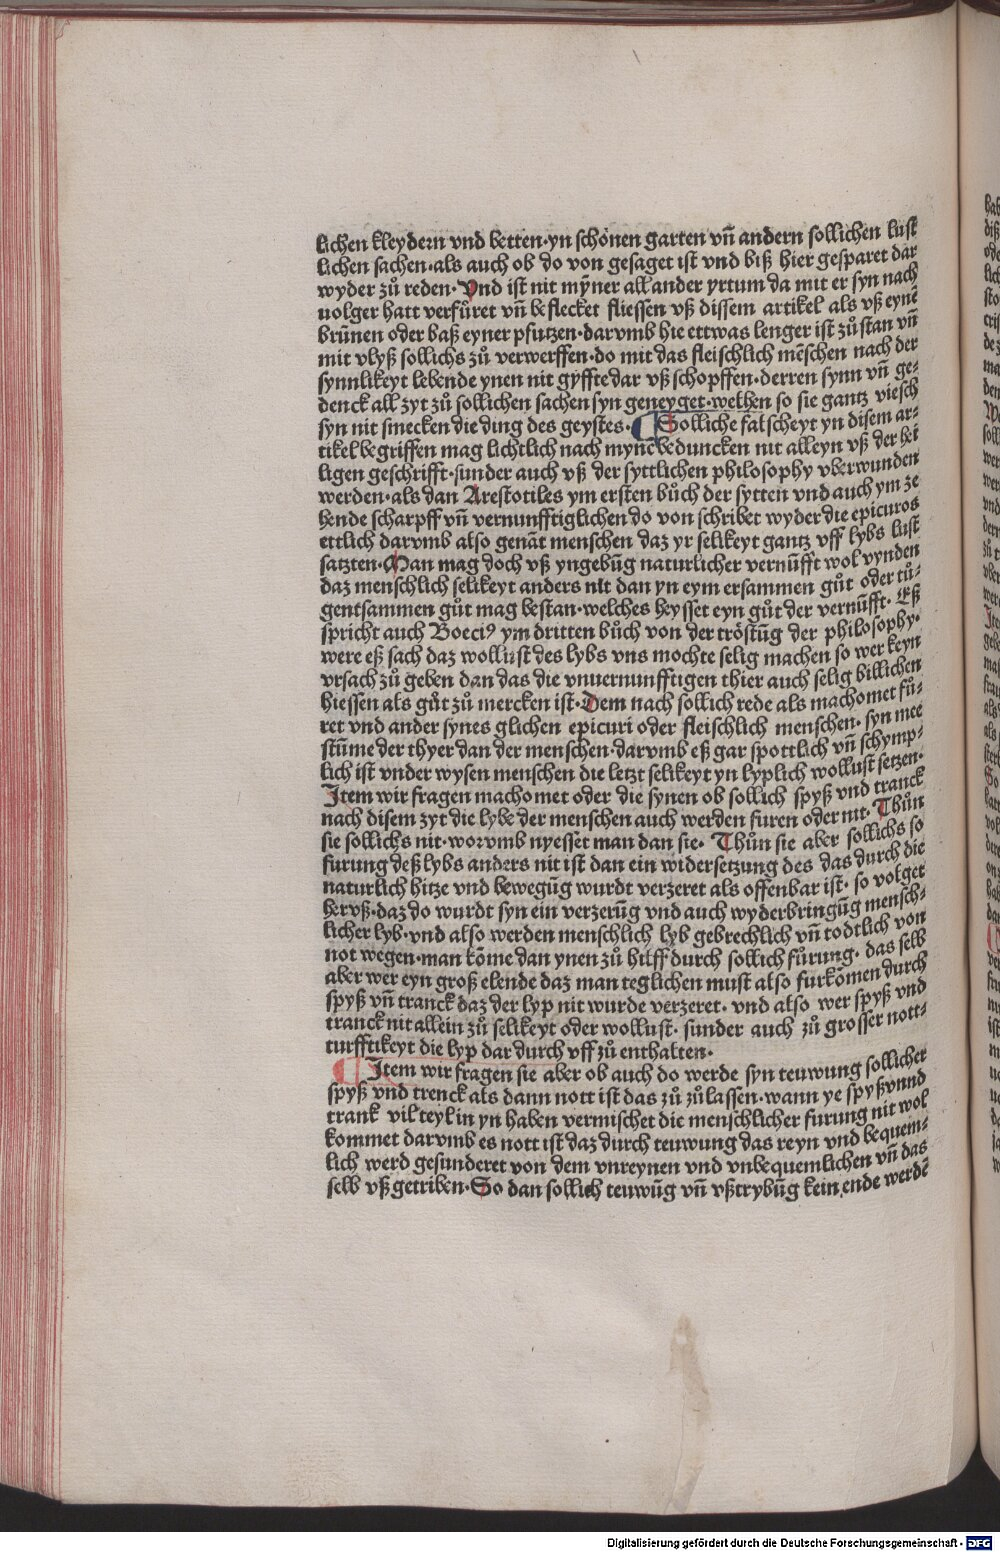 lichen kleydern vnd betten·yn schönen garten vn̄ andern sollichen lust
lichen sachen·als auch ob do von gesaget ist vnd biß hier gesparet dar
wyder zů reden· Vnd ist nit mȳner all ander yrtum da mit er syn nach
uolger hatt verfůret vn̄ beflecket fliessen vß dissem artikel als vß eynē
brūnen oder baß eyner pfutzen·darvmb hie ettwas lenger ist zů stan vn̄
mit vlyß sollichs zů verwerffen·do mit das fleischlich mēschen nach der
synnlikeyt lebende ynen nit gyffte dar vß schopffen·derren synn vn̄ ge⸗
denck all zyt zů sollichen sachen syn geneyget·welhen so sie gantz viesch
syn nit smecken die ding des geystes· Solliche falscheyt yn disem ar⸗
tikel begriffen mag lichtlich nach mynē beduncken nit alleyn vß der hei
ligen geschrifft·sunder auch vß der syttlichen philosophy vberwunden
werden·als dan Arestotiles ym ersten bůch der sytten vnd auch ym ze
hende scharpff vn̄ vernunfftiglichen do von schribet wyder die epicuros
ettlich darvmb also genāt menschen daz yr selikeyt gantz vff lybs lust
satzten·Man mag doch vß yngebūg naturlicher vernūfft wol vynden
daz menschlich selikeyt anders nit dan yn eym ersammen gůt oder tů⸗
gentsammen gůt mag bestan·welches heysset eyn gůt der vernūfft· Eß
spricht auch Boeciꝰ ym dritten bůch von der tröstūg der philosophy·
were eß sach daz wollust des lybs vns mochte selig machen so wer keyn
vrsach zů geben dan das die vnuernunfftigen thier auch selig billichen
hiessen als gůt zů mercken ist·Dem nach sollich rede als machomet fů⸗
ret vnd ander synes glichen epicuri oder fleischlich menschen· syn mee
stūme der thyer dan der menschen·darvmb eß gar spottlich vn̄ schymp⸗
lich ist vnder wysen menschen die letzt selikeyt yn lyplich wollust setzen·
Item wir fragen machomet oder die synen ob sollich spyß vnd tranck
nach disem zyt die lybe der menschen auch werden furen oder nit· Thůn
sie sollichs nit·worvmb nyesset man dan sie· Thůn sie aber sollichs so
furung deß lybs anders nit ist dan ein widersetzung des das durch die
naturlich hitze vnd bewegūg wurdt verzeret als offenbar ist· so volget
hervß·daz do wurdt syn ein verzerūg vnd auch wyderbringūg mensch⸗
licher lyb·vnd also werden menschlich lyb gebrechlich vn̄ todtlich von
not wegen·man kōme dan ynen zů hilff durch sollich fůrung· das selb
aber wer eyn groß elende daz man teglichen must also furkōmen durch
spyß vn̄ tranck daz der lyp nit wurde verzeret· vnd also wer spyß vnd
tranck nit allein zů selikeyt oder wollust· sunder auch zů grosser nott⸗
turfftikeyt die lyp dar durch vff zů enthalten·
Item wir fragen sie aber ob auch do werde syn teuwung sollicher
spyß vnd trenck als dann nott ist das zů zůlassen·wann ye spyß vnnd
trank vil teyl in yn haben vermischet die menschlicher furung nit wol
kommet darvmb es nott ist daz durch teuwung das reyn vnd bequem⸗
lich werd gesunderet von dem vnreynen vnd vnbequemlichen vn̄ das
selb vß getriben·So dan sollich teuwūg vn̄ vßtrybūg kein ende werdē
Digitalisierung gefördert durch die Deutsche Forschungsgemeinschaft - DFG